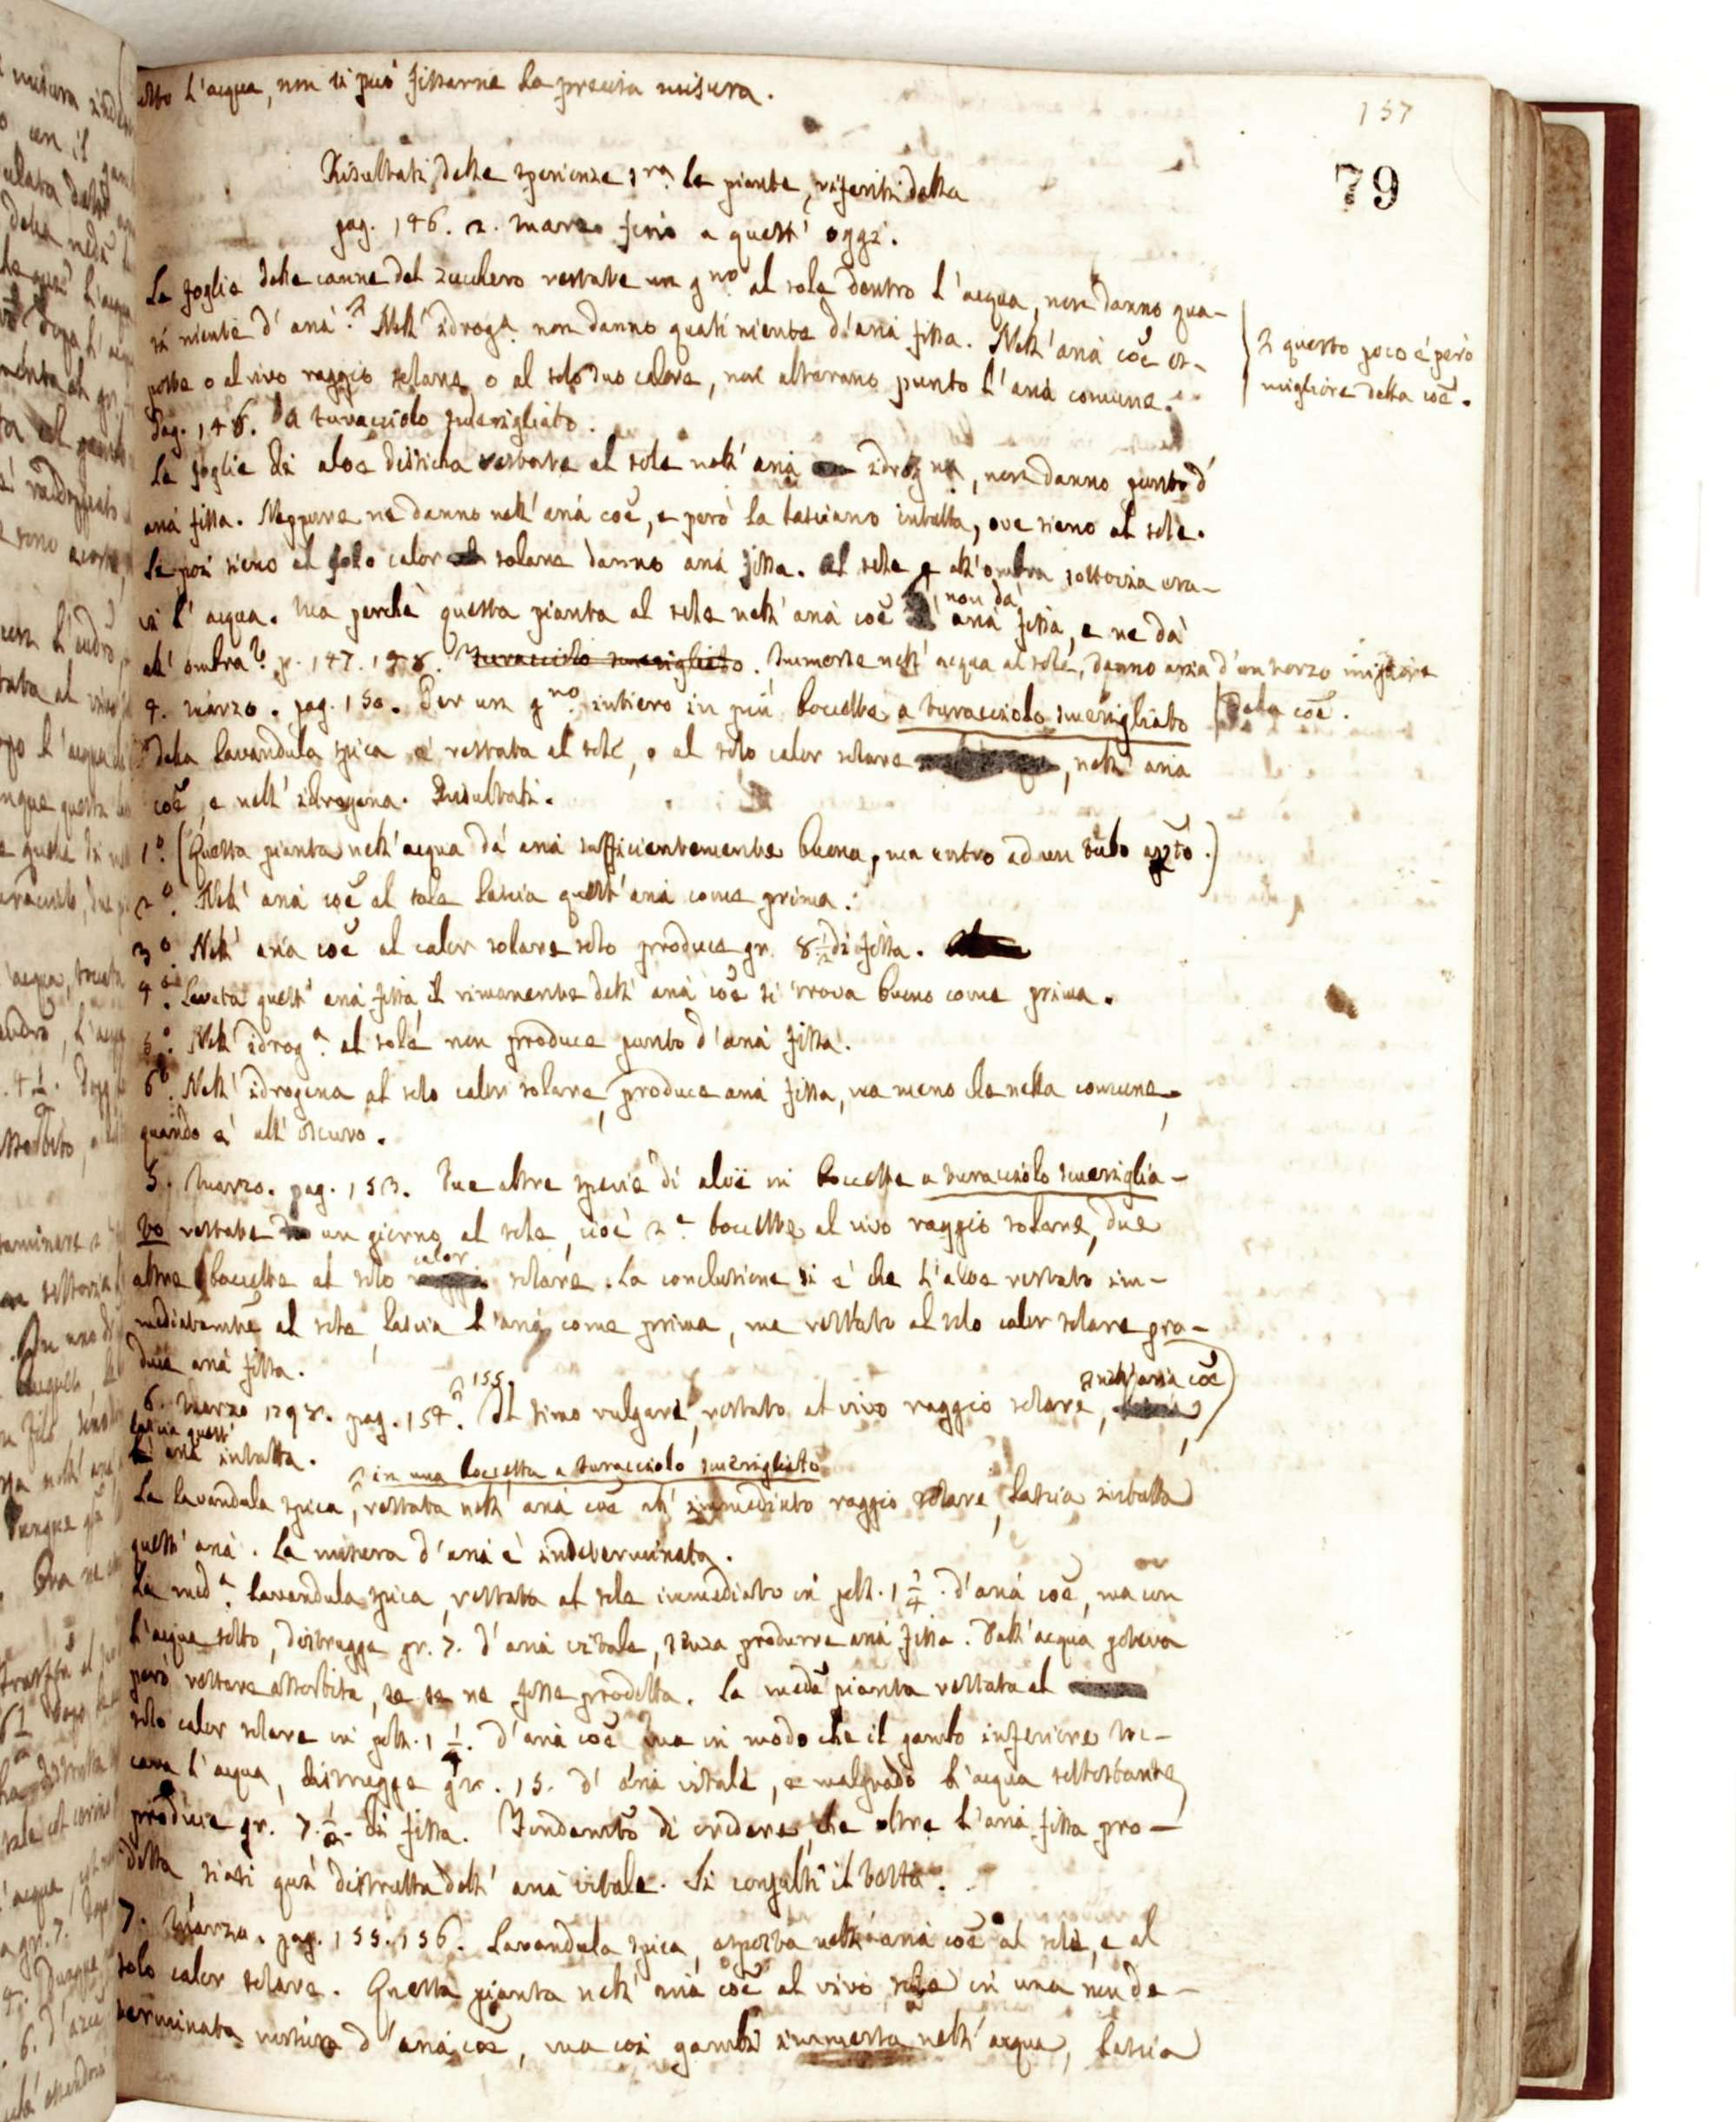 157
79
l'acqua, non si può fissarne la precisa misura.
Risultati delle sperienze s.ra le piante, riferiti dalla
pag. 146. 2. marzo fino a quest' oggi.
Le foglie delle canne del zucchero restate un g.no al sole dentro l'acqua, non danno qua-
si niente d' aria. Nell' idrog.a non danno quasi niente d'aria fissa. Nell' aria coē es-
poste o al vivo raggio solare o al solo suo calore, non alterano punto l' aria comune.
È questo poco è però
migliore della coē.
Pag. 148. a turacciolo smerigliato.
Le foglie di aloe disticha restate al sole nell' aria idrog.na, non danno punto d'
aria fissa. Neppure ne danno nell' aria coē, e però la lasciano intatta, ove sieno al sole.
Se poi sieno al solo calor solare danno aria fissa. Al sole e all' ombra sott'
l' acqua. Ma perchè questa pianta al sole nell' aria coē non dà aria fissa, e ne dà
all' ombra? p. 147. 148. turacciolo smerigliato. Immerse nell' acqua al sole, danno aria d'un terzo migliore
della coē.
4. marzo. pag. 150. Per un g.no intiero in più boccette a turacciolo smerigliato
della lavandula spica è restata al sole, o al solo calor solare, nell' aria
coē, e nell' idrogena. Risultati.
1.º (Questa pianta nell' acqua dà aria sufficientemente buona, ma entro ad un tubo .)
2.º Nell' aria coē al sole lascia quest' aria come prima.
3.º Nell' aria coē al calor solare solo produce gr. 8 ½ di fissa.
4.º Levata quest' aria fissa, il rimanente dell' aria coē si trova buono come prima.
5.º Nell' idrog.a al sole non produce punto d' aria fissa.
6.º Nell' idrogena al solo calor solare, produce aria fissa, ma meno che nella comune,
quando è all' oscuro.
5. Marzo. pag. 153. Due altre specie di aloë in boccette a turacciolo smeriglia-
to restate un giorno al sole, cioè 2.e boccette al vivo raggio solare, due
altre boccette al solo calor solare. La conclusione si è che l'aloe restato im-
mediatamte al sole, lascia l'aria come prima, ma restato al solo calor solare pro-
duce aria fissa.
6. Marzo 1798. pag. 154. 155. Il timo vulgare, restato al vivo raggio solare, nell' aria coē
lascia quest'
aria intatta.
La lavandula spica, in una boccetta a turacciolo smerigliato restata nell' aria coē all' immediato raggio solare, lascia intatta
quest' aria. La misura d' aria è indeterminata.
La med.a lavandula spica, restata al sole immediato in poll. 1 ¼. d' aria coē, ma con
l'acqua sotto, distrugge gr. 7. d' aria vitale, senza produrre aria fissa. Dall' acqua poteva
però restare assorbita, se se ne fosse prodotta. La medā pianta restata al
solo calor solare in poll. 1 ¼. d' aria coē ma in modo che il gambo inferiore toc-
cava l' acqua, distrugge gr. 15. d' aria vitale, e malgrado l' acqua sottostante,
produce gr. 7. ½. di fissa. Fondamto di credere, che oltre l' aria fissa pro-
dotta siasi quì distrutta dell' aria vitale. Si consulti il testo.
7. Marzo. pag. 155. 156. Lavandula spica, esposta nell' aria coē al sole, e al
solo calor solare. Questa pianta nell' aria coē al vivo sole in una non de-
terminata misura d' aria coē, ma coi gambi immersa nell' acqua, lascia